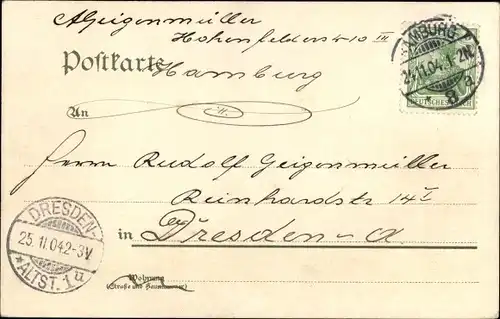 A Geigenmüller
Hohenfelderstr 10 III
Postkarte
Hamburg
HAMBURG
25.11.04.1-2N.
8 a.
DEUTSCHES REICH
An
H.
Herrn Rudolf Geigenmüller
Reinhardstr 14 I
in Dresden-A.
DRESDEN-
25.11.04.2-3V.
*ALTST. 1 u
Wohnung
(Straße und Hausnummer)